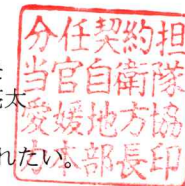 分任契約担
当官自衛隊
愛媛地方協
力本部長印
太
れたい。